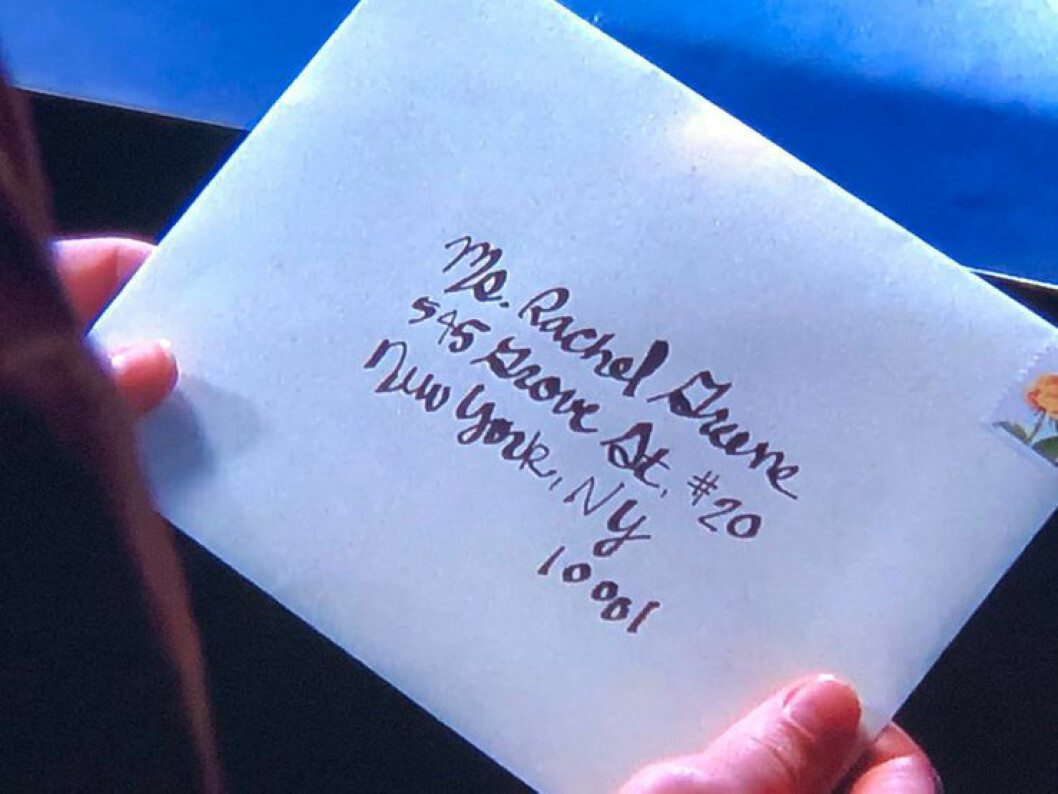 Ms. Rachel Greene
545 Grove St. #20
New York, NY
10001